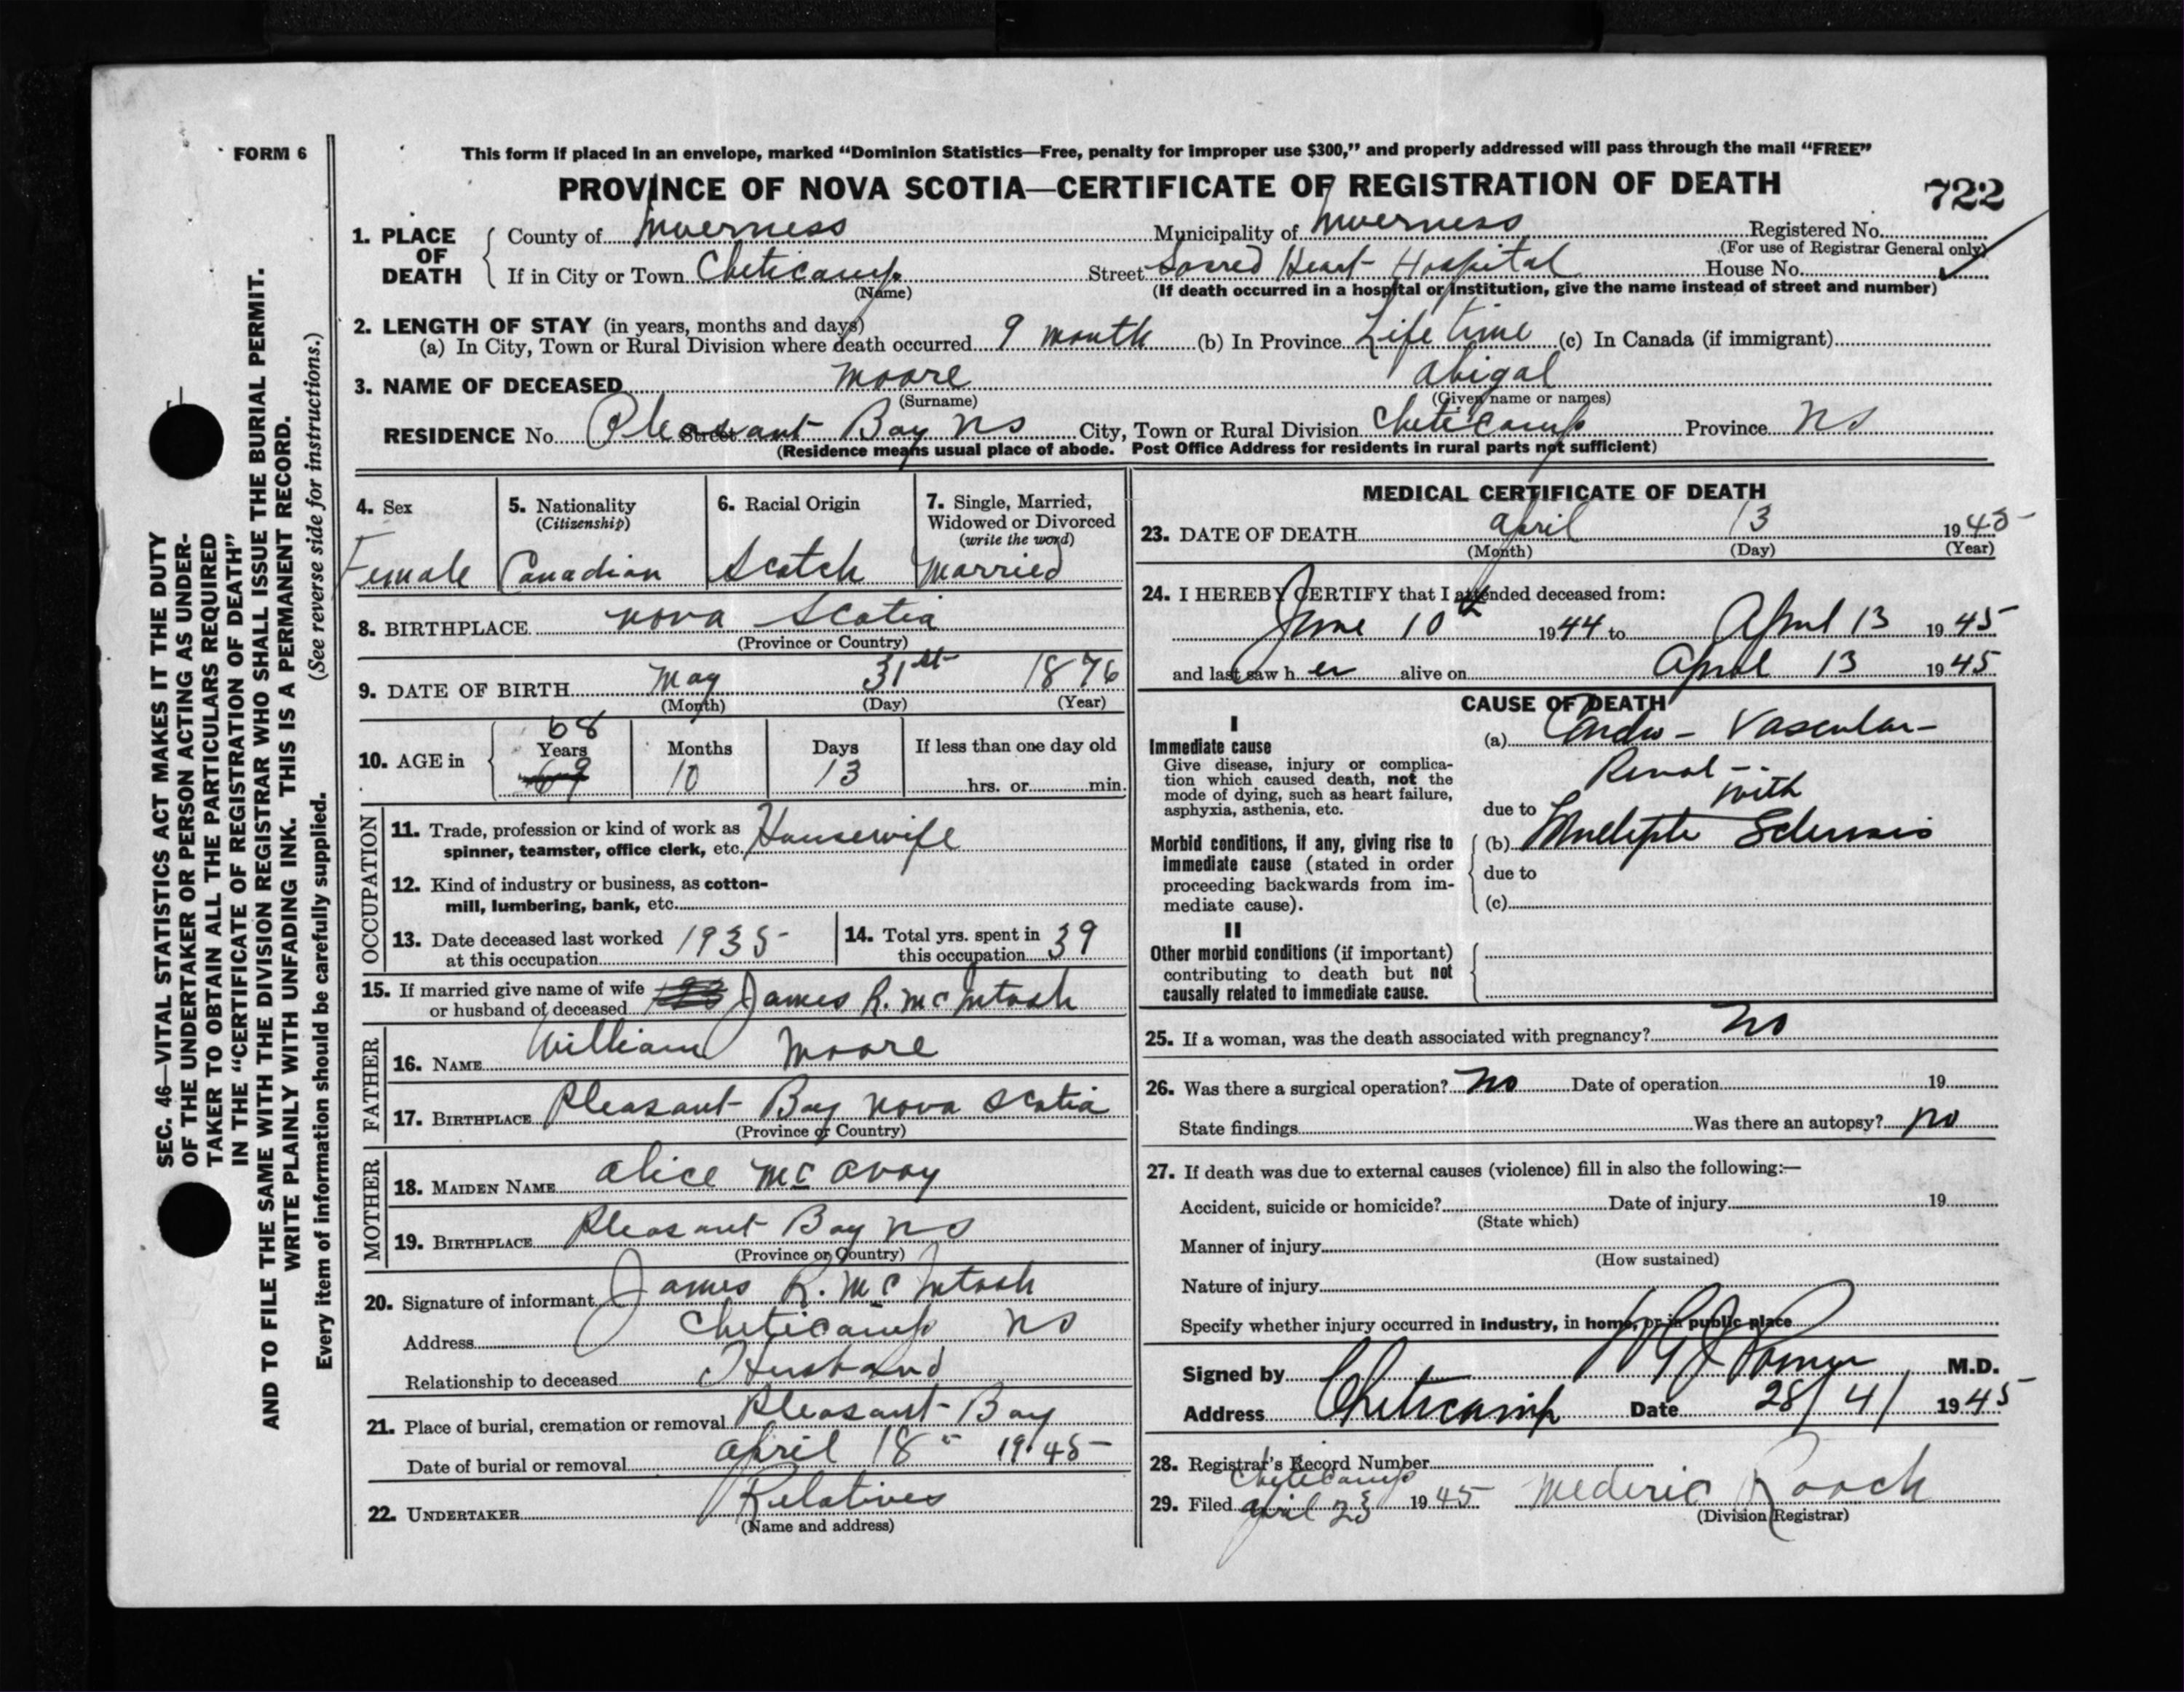 FORM 6
This form if placed in an envelope, marked “Dominion Statistics—Free, penalty for improper use $300,” and properly addressed will pass through the mail “FREE”
PROVINCE OF NOVA SCOTIA—CERTIFICATE OF REGISTRATION OF DEATH
722
1. PLACE OF DEATH
County of Inverness Municipality of Inverness Registered No.
(For use of Registrar General only)
If in City or Town Cheticamp Street Sacred Heart Hospital House No.
(Name) (If death occurred in a hospital or institution, give the name instead of street and number)
2. LENGTH OF STAY (in years, months and days)
(a) In City, Town or Rural Division where death occurred 9 month (b) In Province Life time (c) In Canada (if immigrant)
3. NAME OF DECEASED Moore Abigal
(Surname) (Given name or names)
RESIDENCE No. Street Pleasant Bay NS City, Town or Rural Division Cheticamp Province NS
(Residence means usual place of abode. Post Office Address for residents in rural parts not sufficient)
4. Sex
Female
5. Nationality
(Citizenship)
Canadian
6. Racial Origin
Scotch
7. Single, Married,
Widowed or Divorced
(write the word)
Married
8. BIRTHPLACE Nova Scotia
(Province or Country)
9. DATE OF BIRTH May 31st 1876
(Month) (Day) (Year)
10. AGE in
68
Years Months Days If less than one day old
69 10 13 hrs. or min.
OCCUPATION
11. Trade, profession or kind of work as
spinner, teamster, office clerk, etc. Housewife
12. Kind of industry or business, as cotton-
mill, lumbering, bank, etc.
13. Date deceased last worked
at this occupation 1935
14. Total yrs. spent in
this occupation 39
15. If married give name of wife
or husband of deceased James R. McIntosh
FATHER
16. NAME William Moore
17. BIRTHPLACE Pleasant Bay Nova Scotia
(Province or Country)
MOTHER
18. MAIDEN NAME Alice McAvoy
19. BIRTHPLACE Pleasant Bay NS
(Province or Country)
20. Signature of informant James R. McIntosh
Address Cheticamp NS
Relationship to deceased Husband
21. Place of burial, cremation or removal Pleasant Bay
Date of burial or removal April 18 1945
22. UNDERTAKER Relatives
(Name and address)
MEDICAL CERTIFICATE OF DEATH
23. DATE OF DEATH April 13 1945
(Month) (Day) (Year)
24. I HEREBY CERTIFY that I attended deceased from:
June 10th 1944 to April 13 1945
and last saw her alive on April 13 1945
CAUSE OF DEATH
I
Immediate cause
Give disease, injury or complica-
tion which caused death, not the
mode of dying, such as heart failure,
asphyxia, asthenia, etc.
(a) Cardio - Vascular -
Renal - with
due to
Morbid conditions, if any, giving rise to
immediate cause (stated in order
proceeding backwards from im-
mediate cause).
(b) Multiple Sclerosis
due to
(c)
II
Other morbid conditions (if important)
contributing to death but not
causally related to immediate cause.
25. If a woman, was the death associated with pregnancy? No
26. Was there a surgical operation? No Date of operation 19
State findings Was there an autopsy? No
27. If death was due to external causes (violence) fill in also the following:—
Accident, suicide or homicide? Date of injury 19
(State which)
Manner of injury
(How sustained)
Nature of injury
Specify whether injury occurred in Industry, in home, or in public place
Signed by M.D.
Address Cheticamp Date 28/4/ 1945
28. Registrar's Record Number
Cheticamp
29. Filed April 23 1945 Mederic Roach
(Division Registrar)
SEC. 46—VITAL STATISTICS ACT MAKES IT THE DUTY
OF THE UNDERTAKER OR PERSON ACTING AS UNDER-
TAKER TO OBTAIN ALL THE PARTICULARS REQUIRED
IN THE “CERTIFICATE OF REGISTRATION OF DEATH”
AND TO FILE THE SAME WITH THE DIVISION REGISTRAR WHO SHALL ISSUE THE BURIAL PERMIT.
WRITE PLAINLY WITH UNFADING INK. THIS IS A PERMANENT RECORD.
Every item of information should be carefully supplied. (See reverse side for instructions.)